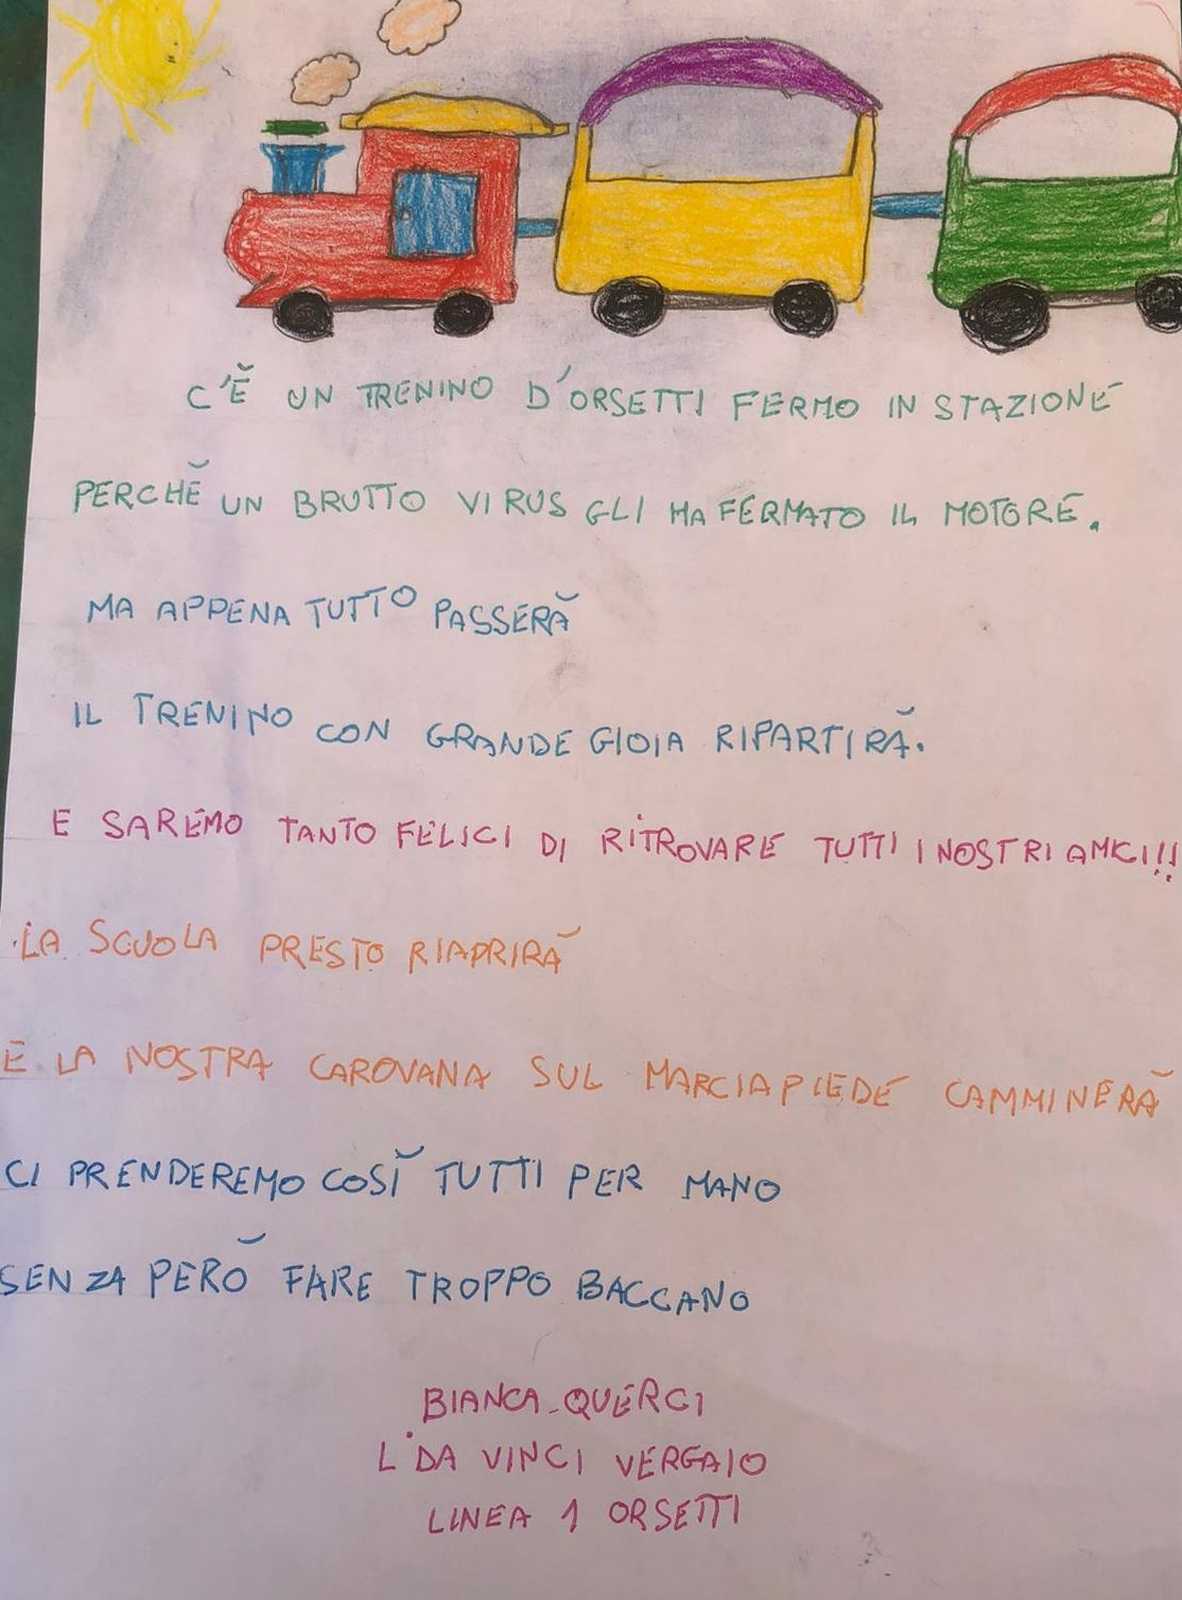 C'È UN TRENINO D'ORSETTI FERMO IN STAZIONE
PERCHÈ UN BRUTTO VIRUS GLI HA FERMATO IL MOTORE.
MA APPENA TUTTO PASSERÀ
IL TRENINO CON GRANDE GIOIA RIPARTIRÀ.
E SAREMO TANTO FELICI DI RITROVARE TUTTI I NOSTRI AMICI!!
LA SCUOLA PRESTO RIAPRIRÀ
E LA NOSTRA CAROVANA SUL MARCIAPIEDE CAMMINERÀ
CI PRENDEREMO COSÌ TUTTI PER MANO
SENZA PERÒ FARE TROPPO BACCANO
BIANCA QUERCI
L. DA VINCI VERGAIO
LINEA 1 ORSETTI